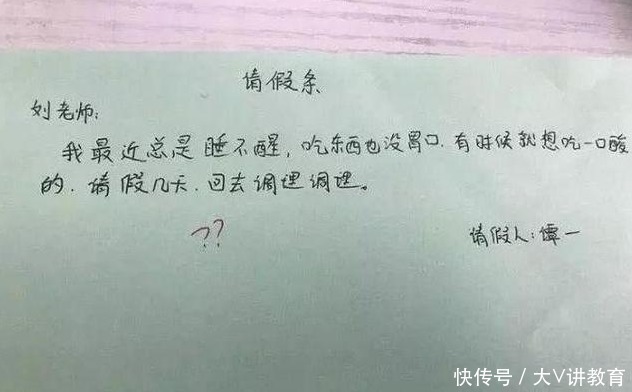 请假条
刘老师:
我最近总是睡不醒,吃东西也没胃口.有时候就想吃一口酸
的.请假几天.回去调理调理。
??
请假人:谭一
快传号/大V讲教育